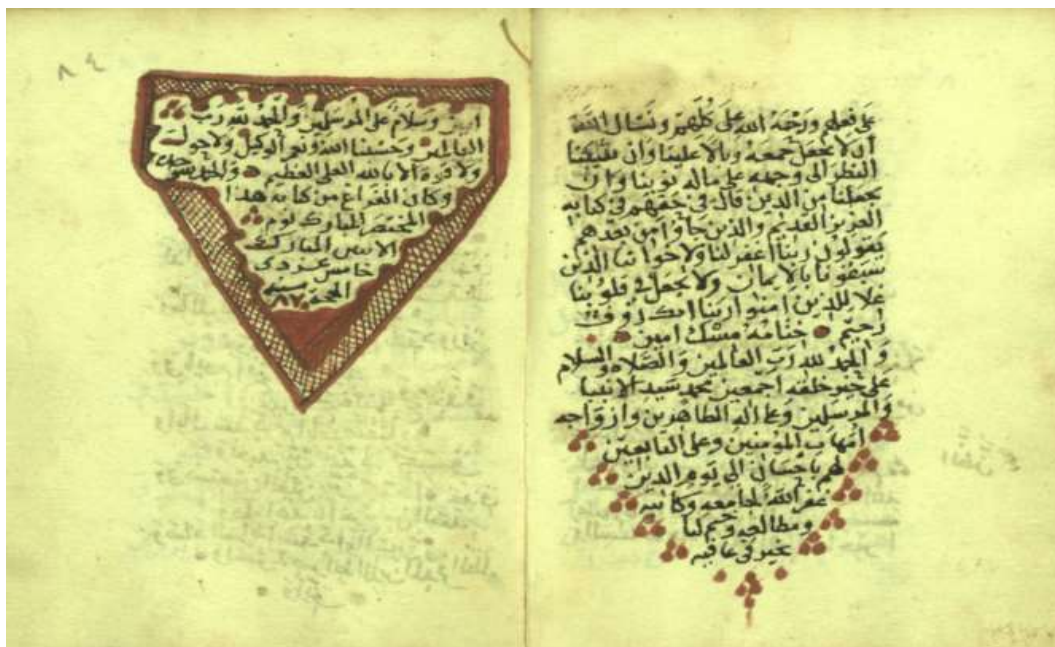 على فعلهم ورحمة الله على كلهم ونسال الله
ان لا يجعل جمعه وبالا علينا وان يقيلنا
النظر الى وجهه على ماله نوينا وان
يجعلنا من الذين قال في حقهم في كتابه
العزيز القديم والذين جاؤا من بعدهم
يقولون ربنا اغفر لنا ولاخواننا الذين
سبقونا بالايمان ولا تجعل في قلوبنا
غلا للذين امنوا ربنا انك روف
رحيم ختامه مسك امين
والحمد لله رب العالمين والصلاه والسلام
على خير خلقه اجمعين محمد سيد الانبيا
والمرسلين وعلى اله الطاهرين وازواجه
امهات المؤمنين وعلى التابعين
لهم باحسان الى يوم الدين
غفر الله لجامعه وكاتبه
ومطالعه وختم لنا
بخير في عافيه
٨٤
امين وسلام على المرسلين والحمد لله رب
العالمين وحسبنا الله ونعم الوكيل ولا حول
ولا قوة الا بالله العلي العظيم والحمد لله وحده
وكان الفراغ من كتابه هذا
المختصر المبارك يوم
الاثنين المبارك
خامس عر ذي
الحجه سنه
٨٧